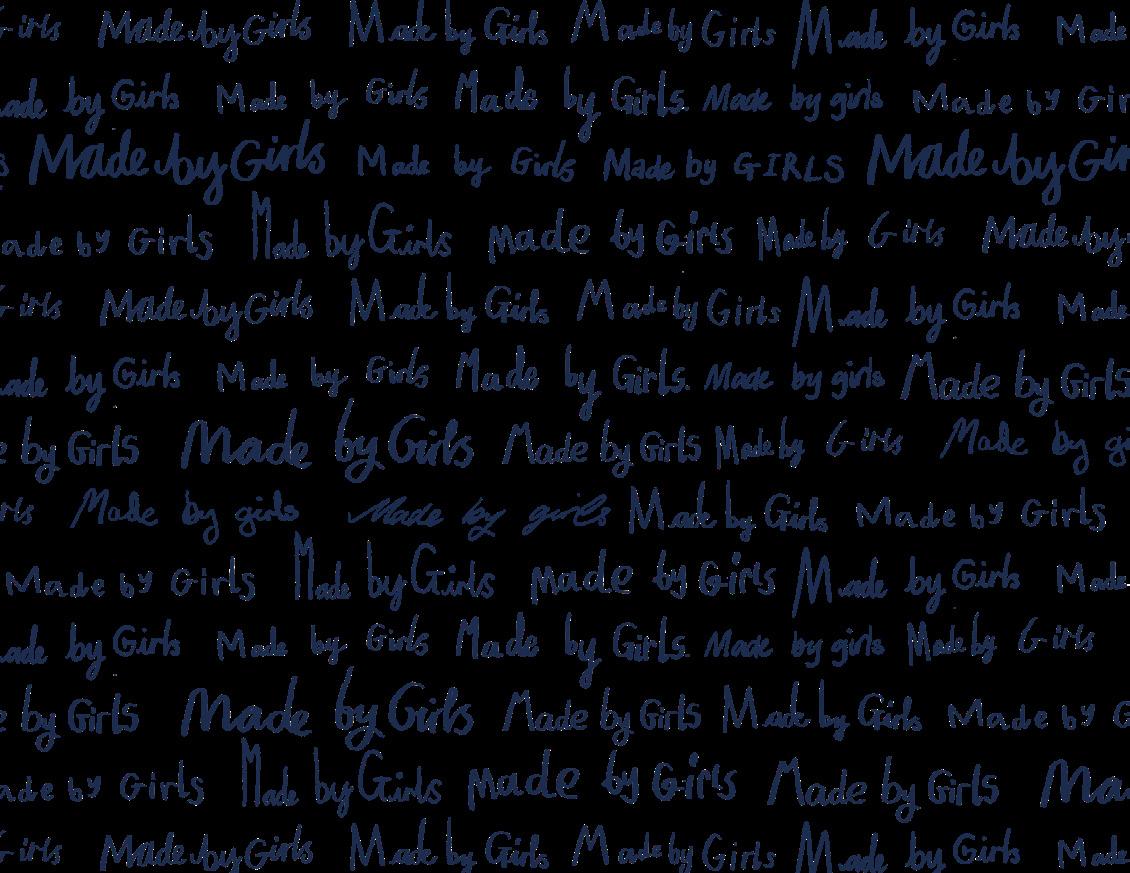 Girls Made by Girls Made by Girls Made by Girls Made by Girls Made
made by Girls Made by Girls Made by Girls. Made by girls Made by Gir
s Made by Girls Made by Girls Made by GIRLS Made by Gir
made by Girls Made by Girls made by Girls Made by Girls Made by
Girls Made by Girls Made by Girls Made by Girls Made by Girls Made
made by Girls Made by Girls Made by Girls. Made by girls Made by Girls
e by Girls Made by Girls Made by Girls Made by Girls Made by gi
rls Made by girls Made by girls Made by Girls Made by Girls
Made by Girls Made by Girls made by Girls Made by Girls Made
ade by Girls Made by Girls Made by Girls. Made by girls Made by Girls
e by Girls Made by Girls Made by Girls Made by Girls Made by G
ade by Girls Made by Girls made by Girls Made by Girls Ma
Girls Made by Girls Made by Girls Made by Girls Made by Girls Made